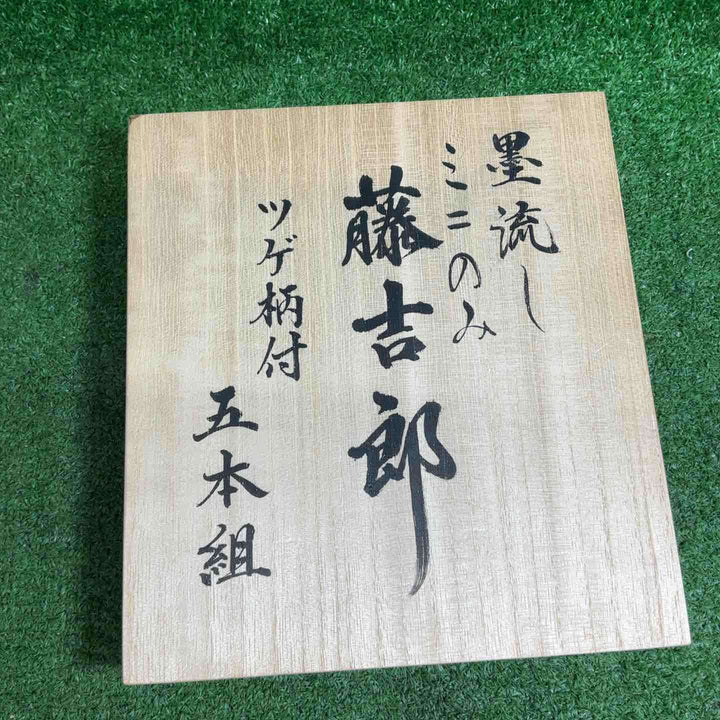 墨流し
ミニのみ
藤吉郎
ツゲ柄付
五本組